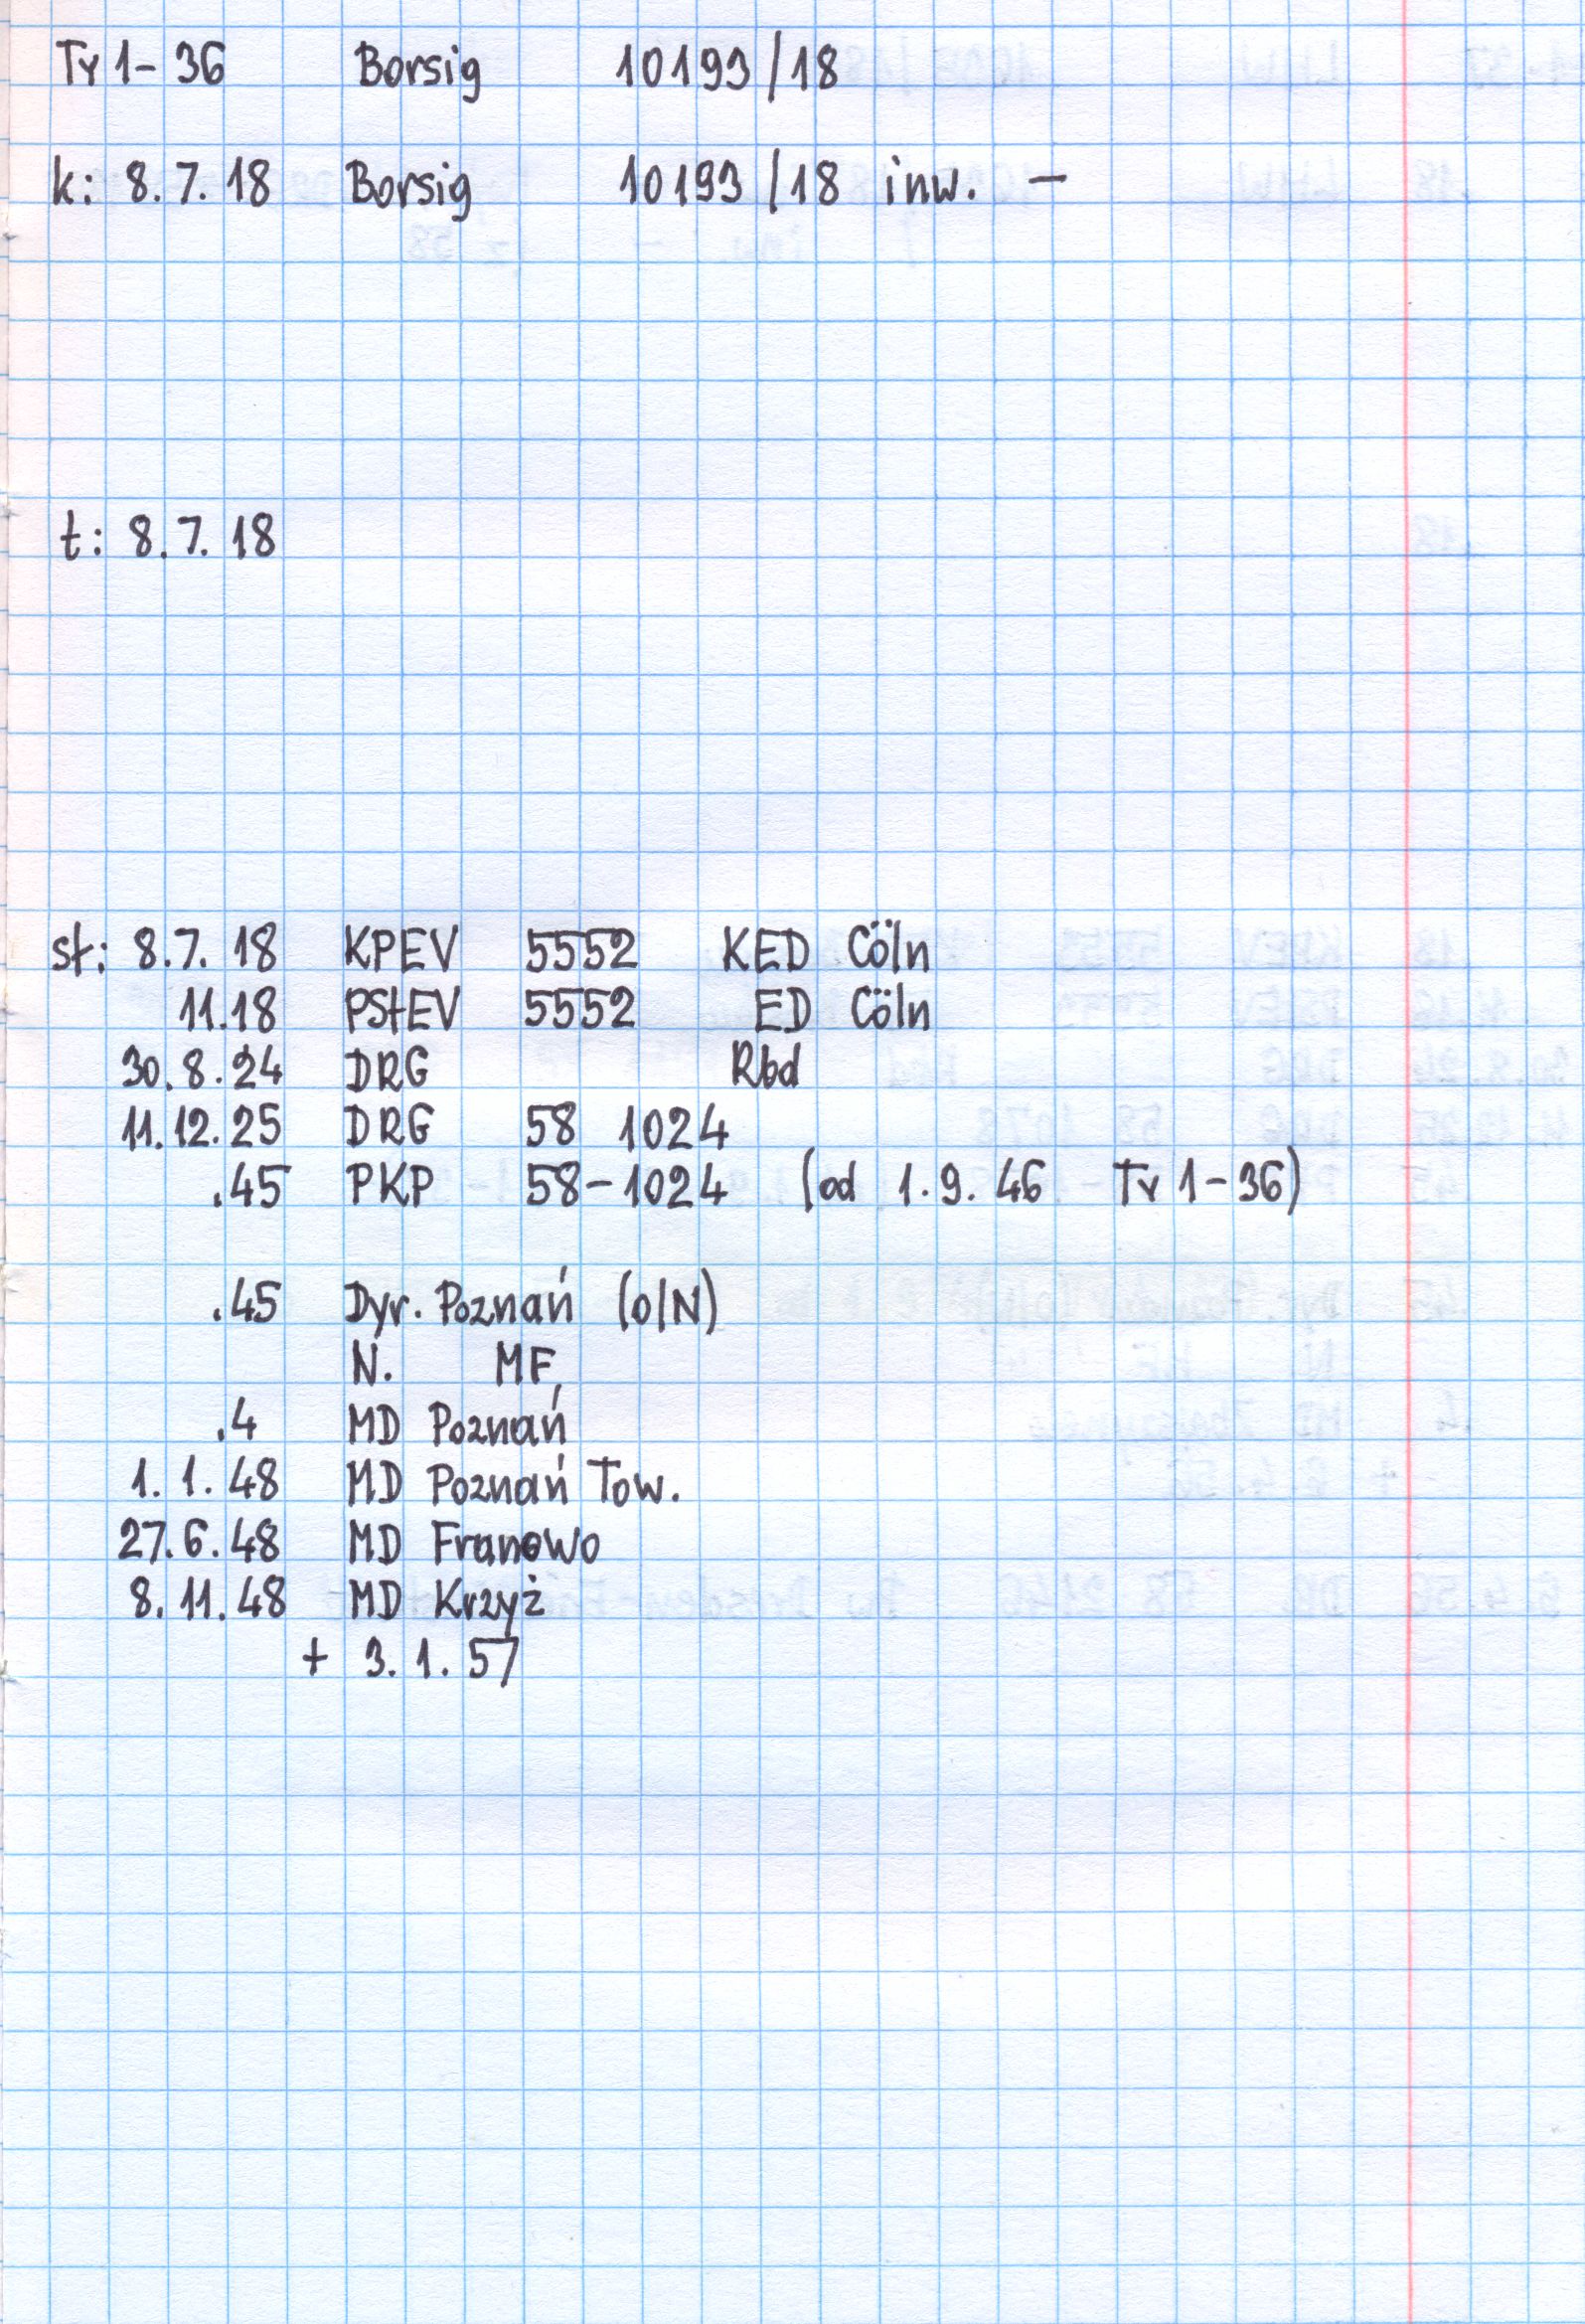 Ty 1-36 Borsig 10193/18
k: 8.7.18 Borsig 10193/18 inw. -
t: 8.7.18
st: 8.7.18 KPEV 5552 KED Cöln
11.18 PStEV 5552 ED Cöln
30.8.24 DRG Rbd
11.12.25 DRG 58 1024
.45 PKP 58-1024 (od 1.9.46 Ty 1-36)
.45 Dyr. Poznań (o/N)
N. MF,
.4 MD Poznań
1.1.48 MD Poznań Tow.
27.6.48 MD Franowo
8.11.48 MD Krzyż
+ 3.1.57